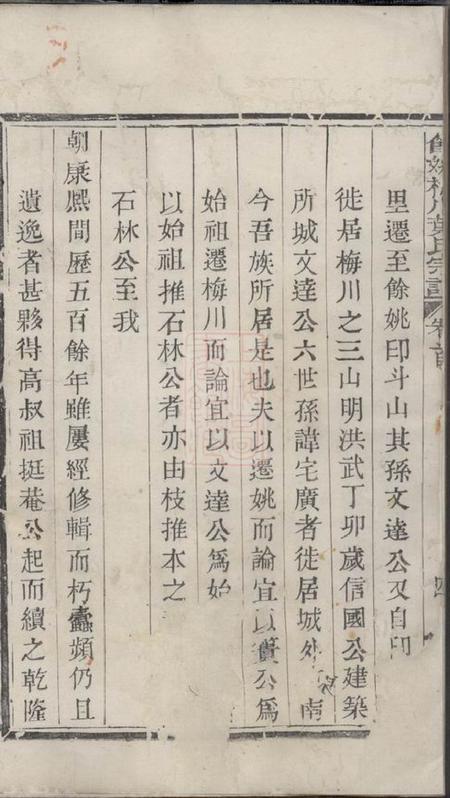 餘姚梅川葉氏宗譜 卷首 四
里遷至餘姚印斗山其孫文達公又自印
徙居梅川之三山明洪武丁卯歲信國公建築
所城文達公六世孫諱宅廣者徙居城外 南
今吾族所居是也夫以遷姚而論宜以 公爲
始祖遷梅川而論宜以文達公爲始
以始祖推石林公者亦由枝推本之
石林公至我
朝康熙間歷五百餘年雖屢經修輯而朽蠹頻仍且
遺逸者甚夥得高叔祖挺菴公起而續之乾隆